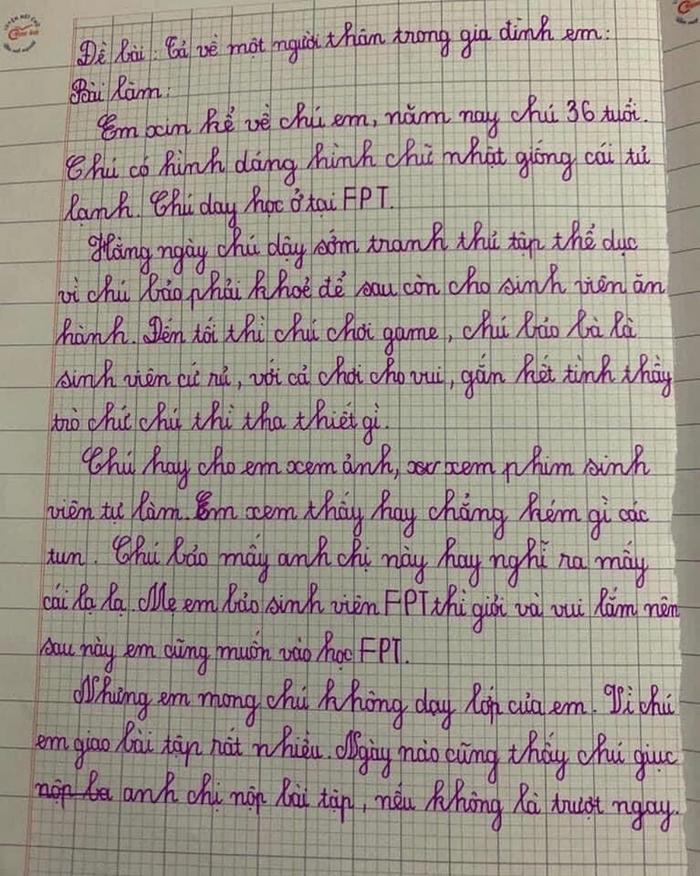 Đề bài: Tả về một người thân trong gia đình em:
Bài làm:
Em xin kể về chú em, năm nay chú 36 tuổi.
Chú có hình dáng hình chữ nhật giống cái tủ
lạnh. Chú dạy học ở tại FPT.
Hằng ngày chú dậy sớm tranh thủ tập thể dục
vì chú bảo phải khoẻ để sau còn cho sinh viên ăn
hành. Đến tối thì chú chơi game, chú bảo bà là
sinh viên cứ rủ, với cả chơi cho vui, gắn kết tình thầy
trò chứ chú thì tha thiết gì.
Chú hay cho em xem ảnh, xem phim sinh
viên tự làm. Em xem thấy hay chẳng kém gì các
tun. Chú bảo mấy anh chị này hay nghĩ ra mấy
cái lạ lạ. Mẹ em bảo sinh viên FPT thì giỏi và vui lắm nên
sau này em cũng muốn vào học FPT.
Nhưng em mong chú không dạy lớp của em. Vì chú
em giao bài tập rất nhiều. Ngày nào cũng thấy chú giục
nộp ba anh chị nộp bài tập, nếu không là trượt ngay.